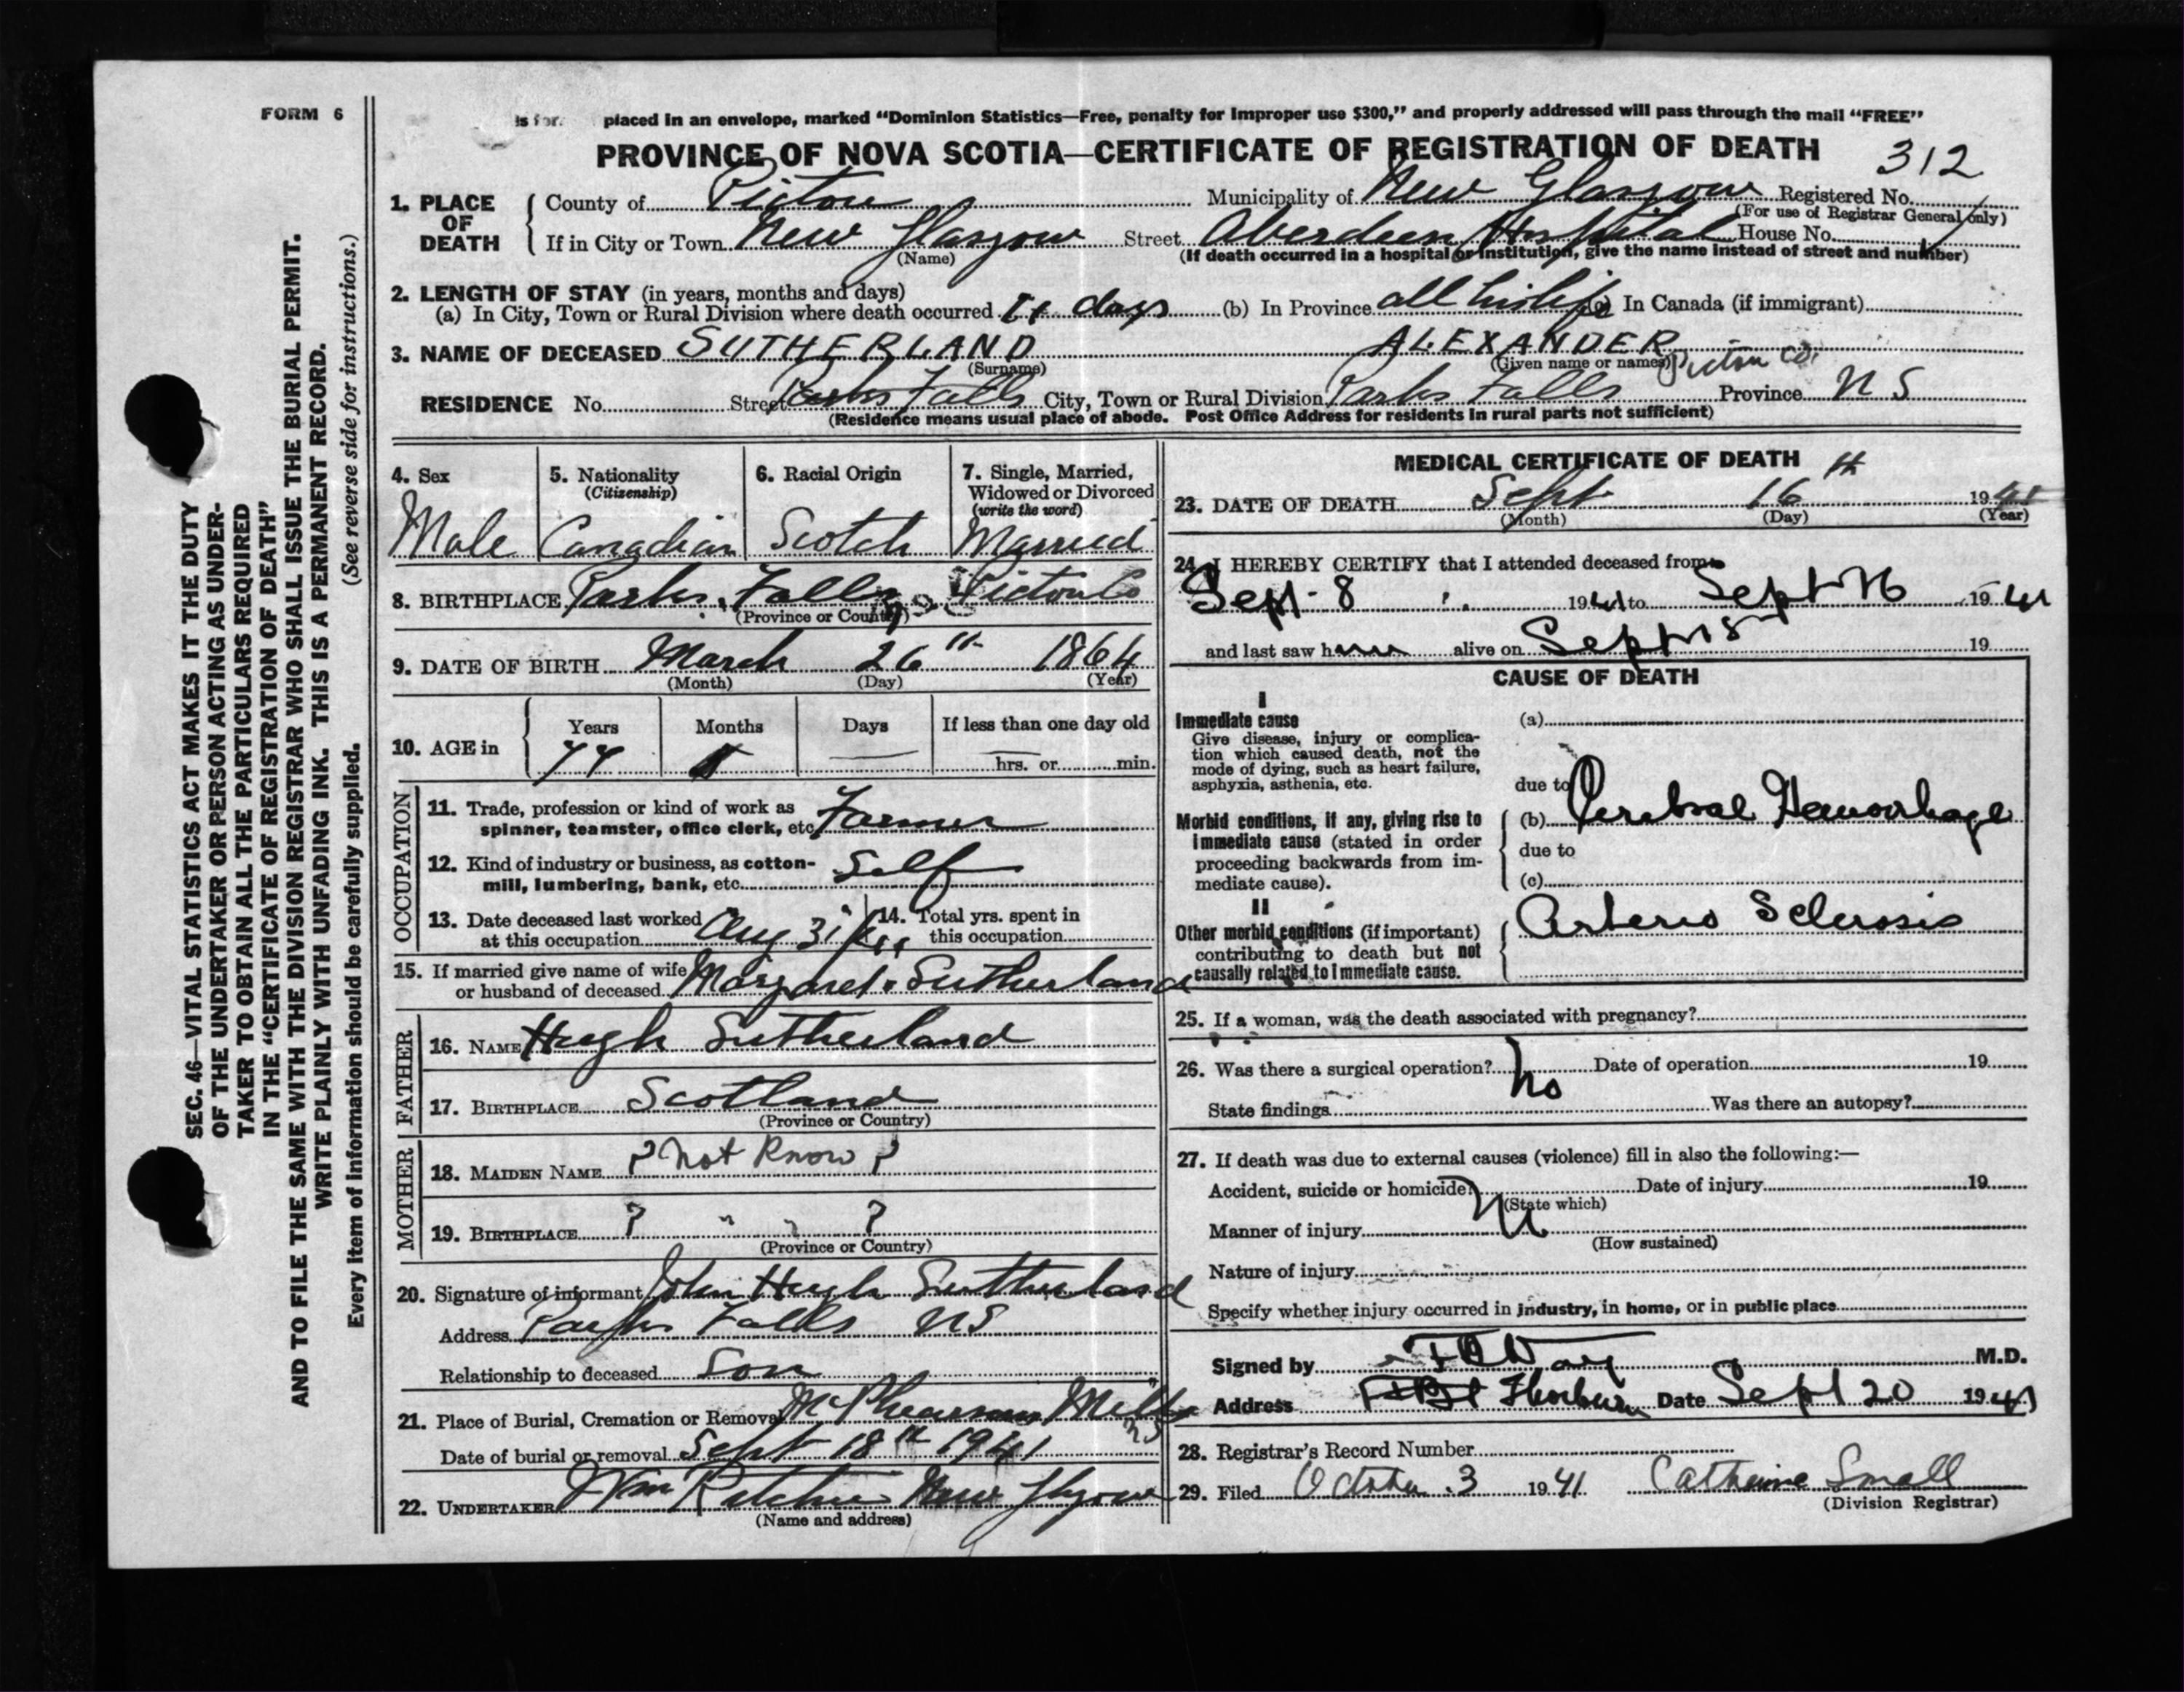 FORM 6
is for placed in an envelope, marked “Dominion Statistics—Free, penalty for improper use $300,” and properly addressed will pass through the mail “FREE”
PROVINCE OF NOVA SCOTIA—CERTIFICATE OF REGISTRATION OF DEATH 312
1. PLACE OF DEATH County of Pictou Municipality of New Glasgow Registered No.
(For use of Registrar General only)
If in City or Town New Glasgow Street Aberdeen Hospital House No.
(Name) (If death occurred in a hospital or institution, give the name instead of street and number)
2. LENGTH OF STAY (in years, months and days)
(a) In City, Town or Rural Division where death occurred days (b) In Province all his life (c) In Canada (if immigrant)
3. NAME OF DECEASED SUTHERLAND ALEXANDER
(Surname) (Given name or names) Pictou Co.
RESIDENCE No. Street Parks Falls City, Town or Rural Division Parks Falls Province N S
(Residence means usual place of abode. Post Office Address for residents in rural parts not sufficient)
SEC. 46—VITAL STATISTICS ACT MAKES IT THE DUTY
OF THE UNDERTAKER OR PERSON ACTING AS UNDER-
TAKER TO OBTAIN ALL THE PARTICULARS REQUIRED
IN THE “CERTIFICATE OF REGISTRATION OF DEATH”
AND TO FILE THE SAME WITH THE DIVISION REGISTRAR WHO SHALL ISSUE THE BURIAL PERMIT.
WRITE PLAINLY WITH UNFADING INK. THIS IS A PERMANENT RECORD.
Every item of information should be carefully supplied. (See reverse side for instructions.)
4. Sex 5. Nationality 6. Racial Origin 7. Single, Married,
(Citizenship) Widowed or Divorced
(write the word)
Male Canadian Scotch Married
8. BIRTHPLACE Parks Falls Pictou Co
(Province or Country)
9. DATE OF BIRTH March 26th 1864
(Month) (Day) (Year)
10. AGE in Years Months Days If less than one day old
77 — — hrs. or min.
OCCUPATION
11. Trade, profession or kind of work as
spinner, teamster, office clerk, etc. Farmer
12. Kind of industry or business, as cotton-
mill, lumbering, bank, etc. Self
13. Date deceased last worked
at this occupation Aug 31
14. Total yrs. spent in
this occupation
15. If married give name of wife
or husband of deceased Margaret Sutherland
FATHER
16. NAME Hugh Sutherland
17. BIRTHPLACE Scotland
(Province or Country)
MOTHER
18. MAIDEN NAME ? Not Know ?
19. BIRTHPLACE ? " " ?
(Province or Country)
20. Signature of informant John Hugh Sutherland
Address Parks Falls NS
Relationship to deceased Son
21. Place of Burial, Cremation or Removal McPhearsons Mills
NS
Date of burial or removal Sept 18th 1941
22. UNDERTAKER J Wm Ritchie New Glasgow
(Name and address)
MEDICAL CERTIFICATE OF DEATH
23. DATE OF DEATH Sept 16th 1941
(Month) (Day) (Year)
24. I HEREBY CERTIFY that I attended deceased from
Sept 8 1941 to Sept 16 1941
and last saw him alive on Sept 15 19
CAUSE OF DEATH
I
Immediate cause (a)
Give disease, injury or complica-
tion which caused death, not the
mode of dying, such as heart failure,
asphyxia, asthenia, etc. due to
Morbid conditions, if any, giving rise to
immediate cause (stated in order
proceeding backwards from im-
mediate cause).
(b) Cerebral Hemorrhage
due to
(c)
II
Other morbid conditions (if important)
contributing to death but not
causally related to immediate cause.
Arterio Sclerosis
25. If a woman, was the death associated with pregnancy?
26. Was there a surgical operation? No Date of operation 19
State findings Was there an autopsy?
27. If death was due to external causes (violence) fill in also the following:—
Accident, suicide or homicide? Date of injury 19
(State which)
Manner of injury
(How sustained)
Nature of injury
Specify whether injury occurred in industry, in home, or in public place
Signed by M.D.
Address Thorburn Date Sept 20 1941
28. Registrar’s Record Number
29. Filed October 3 1941 Catherine Small
(Division Registrar)